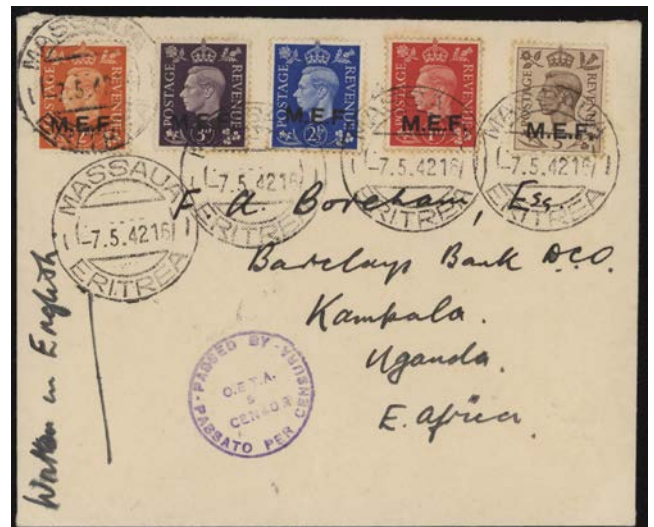 POSTAGE REVENUE
M.E.F.
2D
POSTAGE REVENUE
M.E.F.
3D
POSTAGE REVENUE
M.E.F.
2½D
POSTAGE REVENUE
M.E.F.
POSTAGE REVENUE
M.E.F.
5D
MASSAUA
-7.5.42
MASSAUA
-7.5.42 16
ERITREA
-7.5.42 16
ERITREA
-7.5.42 16
ERITREA
MASSAUA
-7.5.42 16
ERITREA
F. A. Boreham, Esq.
Barclays Bank D.C.O.
Kampala.
Uganda.
E. Africa.
Written in English
PASSED BY CENSURA
O.E.T.A.
CENSOR
PASSATO PER